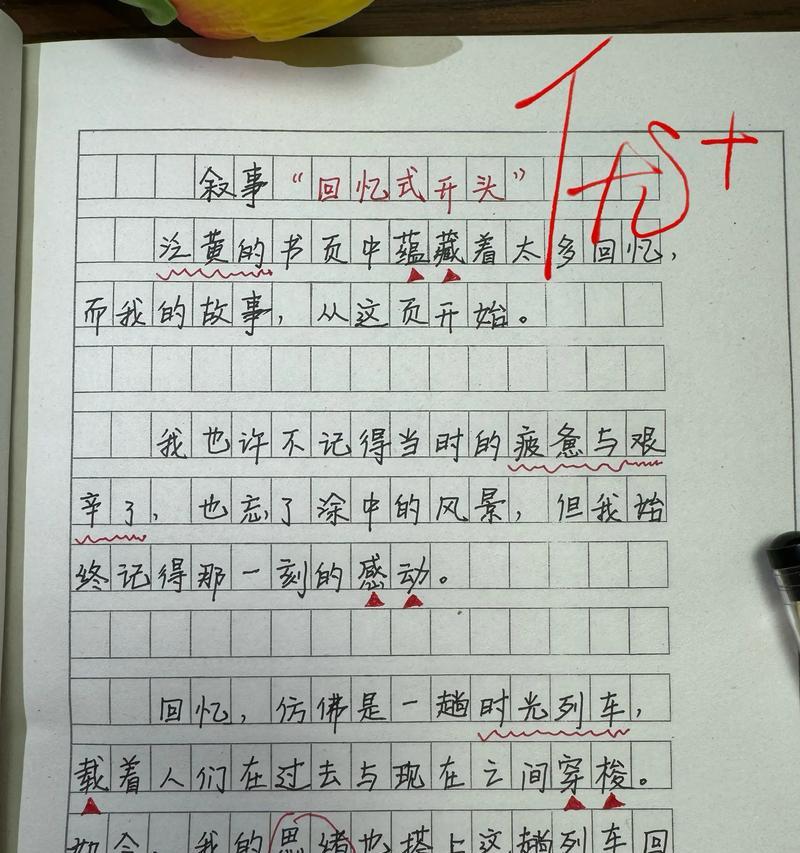 叙事“回忆式开头”
泛黄的书页中蕴藏着太多回忆，
而我的故事，从这页开始。
我也许不记得当时的疲惫与艰
辛了，也忘了途中的风景，但我始
终记得那一刻的感动。
回忆，仿佛是一趟时光列车，
载着人们在过去与现在之间穿梭。
如今，我的思绪也搭上这趟列车回